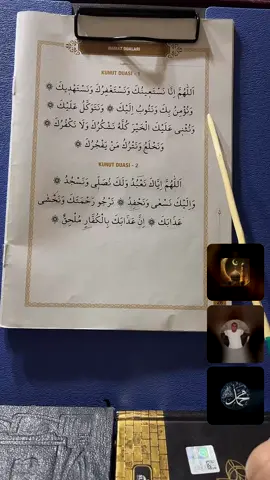 KUNUT DUALARI
KUNUT DUASI - 1
اَللّٰهُمَّ اِنَّا نَسْتَعِينُكَ وَنَسْتَغْفِرُكَ وَنَسْتَهْدِيكَ ۞
وَنُؤْمِنُ بِكَ وَنَتُوبُ اِلَيْكَ ۞ وَنَتَوَكَّلُ عَلَيْكَ ۞
وَنُثْنِى عَلَيْكَ الْخَيْرَ كُلَّهُ نَشْكُرُكَ وَلَا نَكْفُرُكَ ۞
وَنَخْلَعُ وَنَتْرُكُ مَنْ يَفْجُرُكَ ۞
KUNUT DUASI - 2
اَللّٰهُمَّ اِيَّاكَ نَعْبُدُ وَلَكَ نُصَلِّى وَنَسْجُدُ ۞
وَاِلَيْكَ نَسْعٰى وَنَحْفِدُ ۞ نَرْجُو رَحْمَتَكَ وَنَخْشٰى
عَذَابَكَ ۞ اِنَّ عَذَابَكَ بِالْكُفَّارِ مُلْحِقٌ ۞
محمد